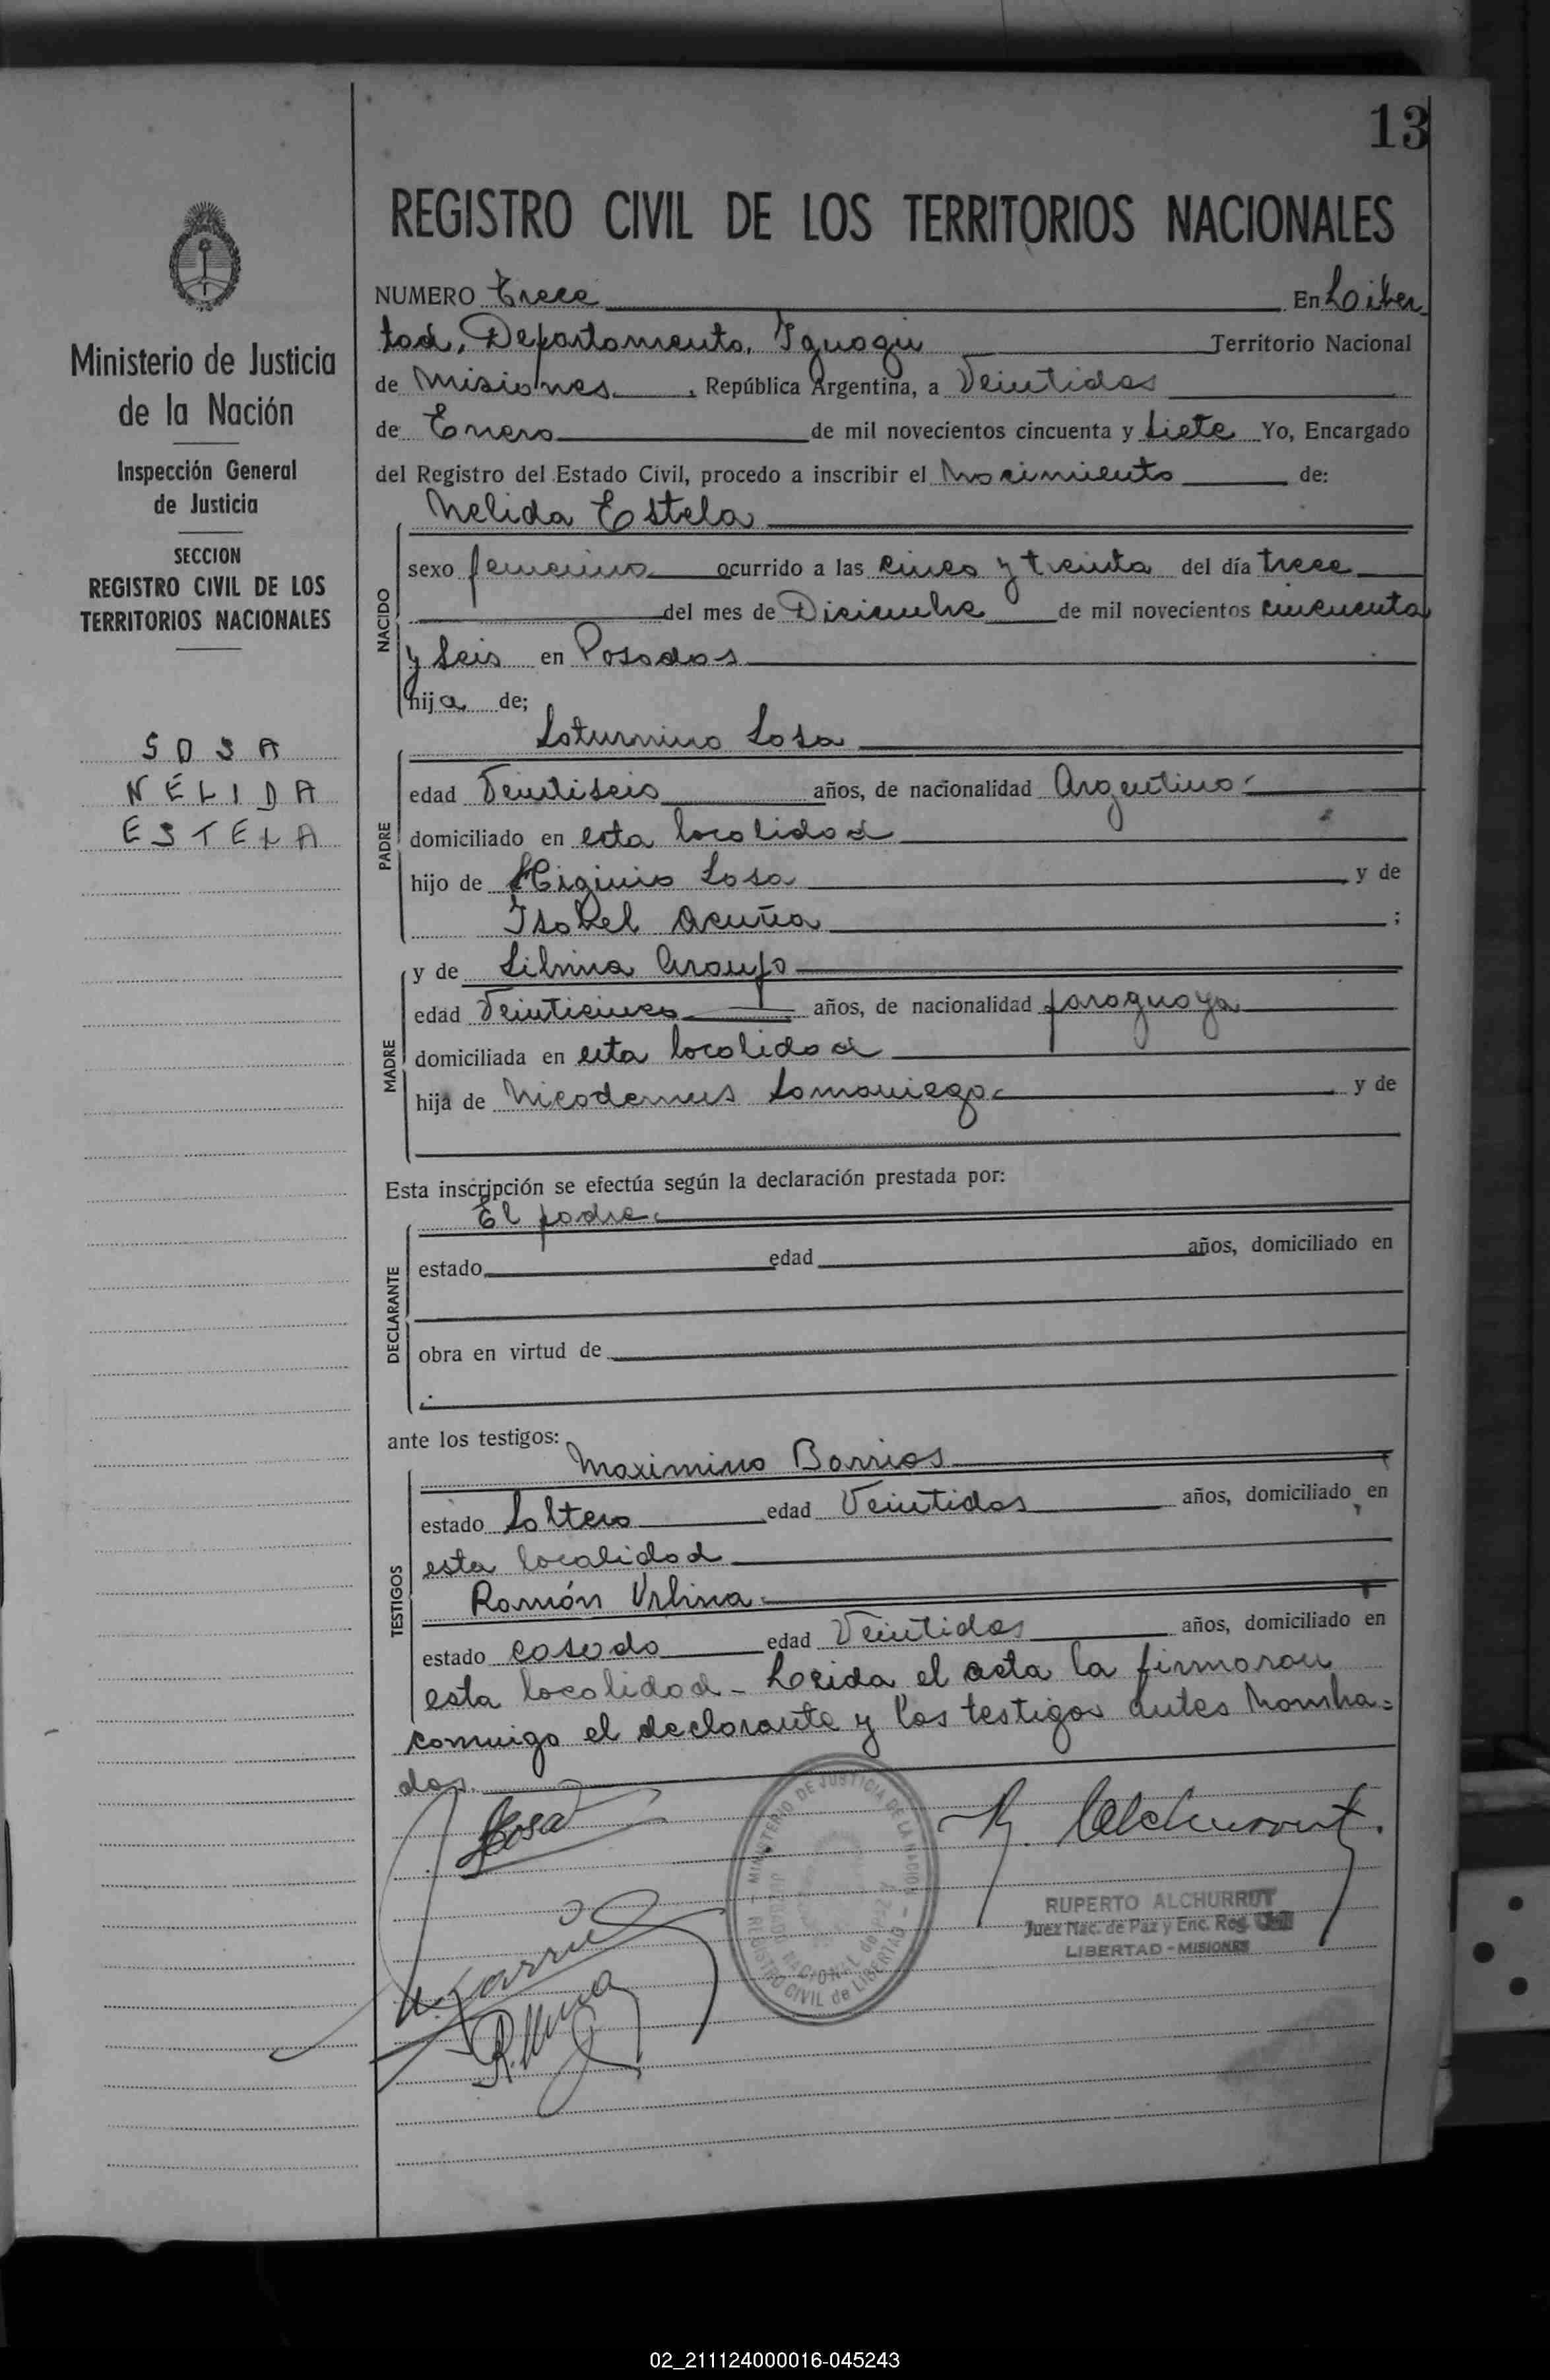 13
REGISTRO CIVIL DE LOS TERRITORIOS NACIONALES
Ministerio de Justicia
de la Nación
Inspección General
de Justicia
SECCION
REGISTRO CIVIL DE LOS
TERRITORIOS NACIONALES
SOSA
NÉLIDA
ESTELA
NUMERO Trece En Liber
tad, Departamento, Iguazu Territorio Nacional
de Misiones, República Argentina, a Veintidos
de Enero de mil novecientos cincuenta y Siete Yo, Encargado
del Registro del Estado Civil, procedo a inscribir el Nacimiento de:
Nelida Estela
NACIDO
sexo femenino ocurrido a las cinco y treinta del día trece
del mes de Diciembre de mil novecientos cincuenta
y Seis en Posadas
hija de;
PADRE
Saturnino Sosa
edad Veintiseis años, de nacionalidad Argentino
domiciliado en esta localidad
hijo de Higinio Sosa y de
Isabel Acuña ;
MADRE
y de Silvina Araujo
edad Veinticinco años, de nacionalidad paraguaya
domiciliada en esta localidad
hija de Nicodemus Samaniego y de
Esta inscripción se efectúa según la declaración prestada por:
DECLARANTE
El padre
estado edad años, domiciliado en
obra en virtud de
ante los testigos:
TESTIGOS
Maximino Barrios
estado Soltero edad Veintidos años, domiciliado en
esta localidad
Ramón Urbina
estado casado edad Veintidos años, domiciliado en
esta localidad - Leida el acta la firmaron
conmigo el declarante y los testigos antes nombra=
dos.
Sosa
R. Alchurrut.
MINISTERIO DE JUSTICIA DE LA NACION
REGISTRO CIVIL de LIBERTAD
RUPERTO ALCHURRUT
Juez Nac. de Paz y Enc. Reg. Civil
LIBERTAD - MISIONES
02_211124000016-045243